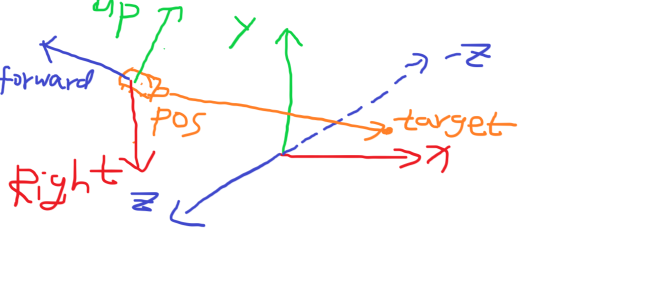 up
Y
-Z
forward
pos
target
x
Right
Z